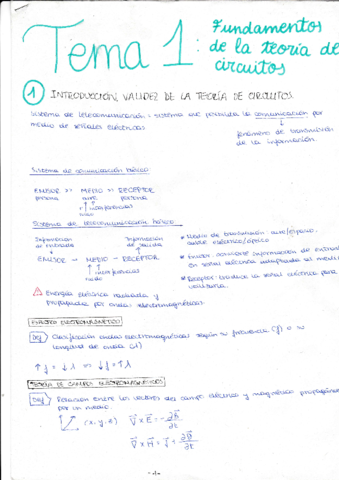 Tema 1: Fundamentos
de la teoría de
circuitos
1 INTRODUCCIÓN, VALIDEZ DE LA TEORÍA DE CIRCUITOS
Sistema de telecomunicación: sistema que permite la comunicación por
medio de señales eléctricas
fenómeno de transmisión
de la información.
Sistema de comunicación básico
EMISOR >> MEDIO >> RECEPTOR
persona aire persona
↑ interferencias
ruido
Sistema de telecomunicación básico
Información de entrada
Información de salida
EMISOR - MEDIO - RECEPTOR
↑ interferencias
ruido
* Medio de transmisión: aire/espacio.
cable eléctrico/óptico
* Emisor: convierte información de entrada
en señal eléctrica adaptándola al medio
* Receptor: traduce la señal eléctrica para
Energía eléctrica radiada y
propagada por ondas electromagnéticas.
ESPECTRO ELECTROMAGNÉTICO
Def Clasificación ondas electromagnéticas según su frecuencia (f) o su
longitud de onda (λ)
↑f = ↓λ ∞ ↓f = ↑λ
TEORÍA DE CAMPOS ELECTROMAGNÉTICOS
Def Relación entre los valores del campo eléctrico y magnético propagándose
por un medio.
(x, y, z) ∇ x E = - ∂B/∂t
∇ x H = J + ∂D/∂t
-1-